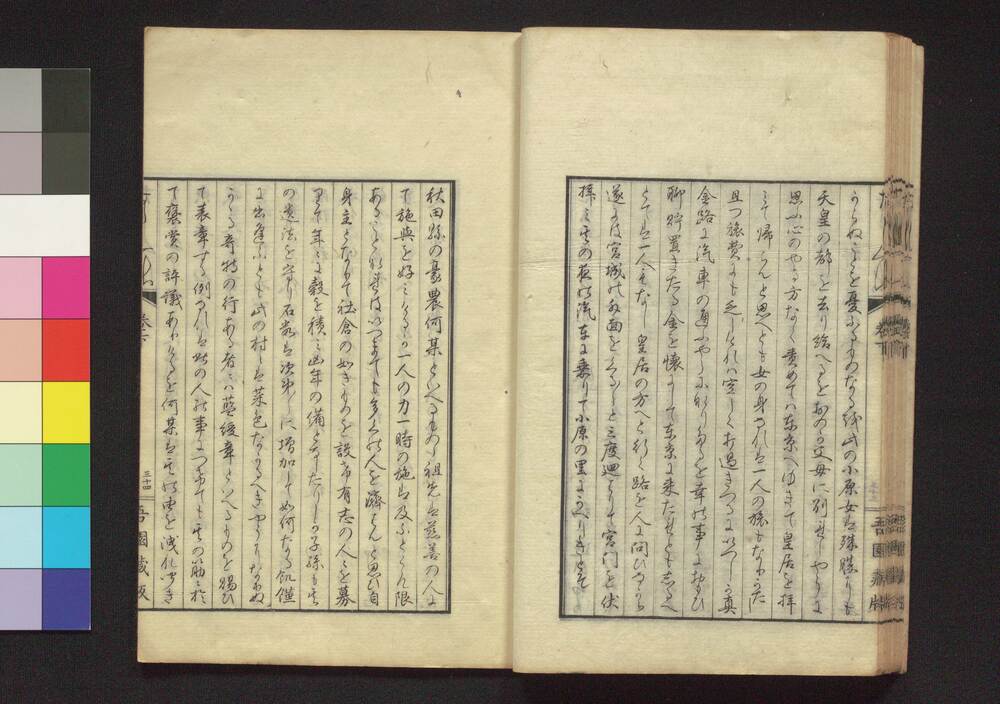 うかねことを憂ふるものなる彼此の小原女は殊勝にも
天皇の都を去り給へるをおのが父母に別れしやうに
思ふ心のやる方なく責めては東京へゆきて皇居を拝
みて帰らんと思へども女の身なれば一人の旅もなりがた
且つ旅費にも乏しければ空しく打過ぎつるにいつしか真
金路に汽車の通ふやうになりぬるを幸の事におもひ
聊貯置きたる金を懐にして東京に来たれどもしるべ
とては一人もなし皇居の方へと行く路を人に問ひつつ
遂には宮城の面を三度廻りて宮門を伏
拝みその夜の汽車に乗りて小原の里にかへりきとぞ
秋田縣の豪農何某といへるもの祖先は慈善の人に
て施與を好みけるが一人の力一時の施は及ぶところ限
あることなればいつまでも多くの人を濟はんと思ひ自
身主となりて社倉の如きものを設け有志の人々を募
りて年々に穀を積み凶年の備となしたりしが子孫もその
の遺法を守り石高は次第に増加して如何なる飢饉
に出逢ふとも此の村には菜色なかるべきやうになりぬ
かかる奇特の行ある者には藍綬章といへるものを賜ひ
て表章する例なれば此の人の事につきてもその筋に於
て褒賞の評議ありけるを何某はその由を洩れ聞き
三十四
吾園蔵板